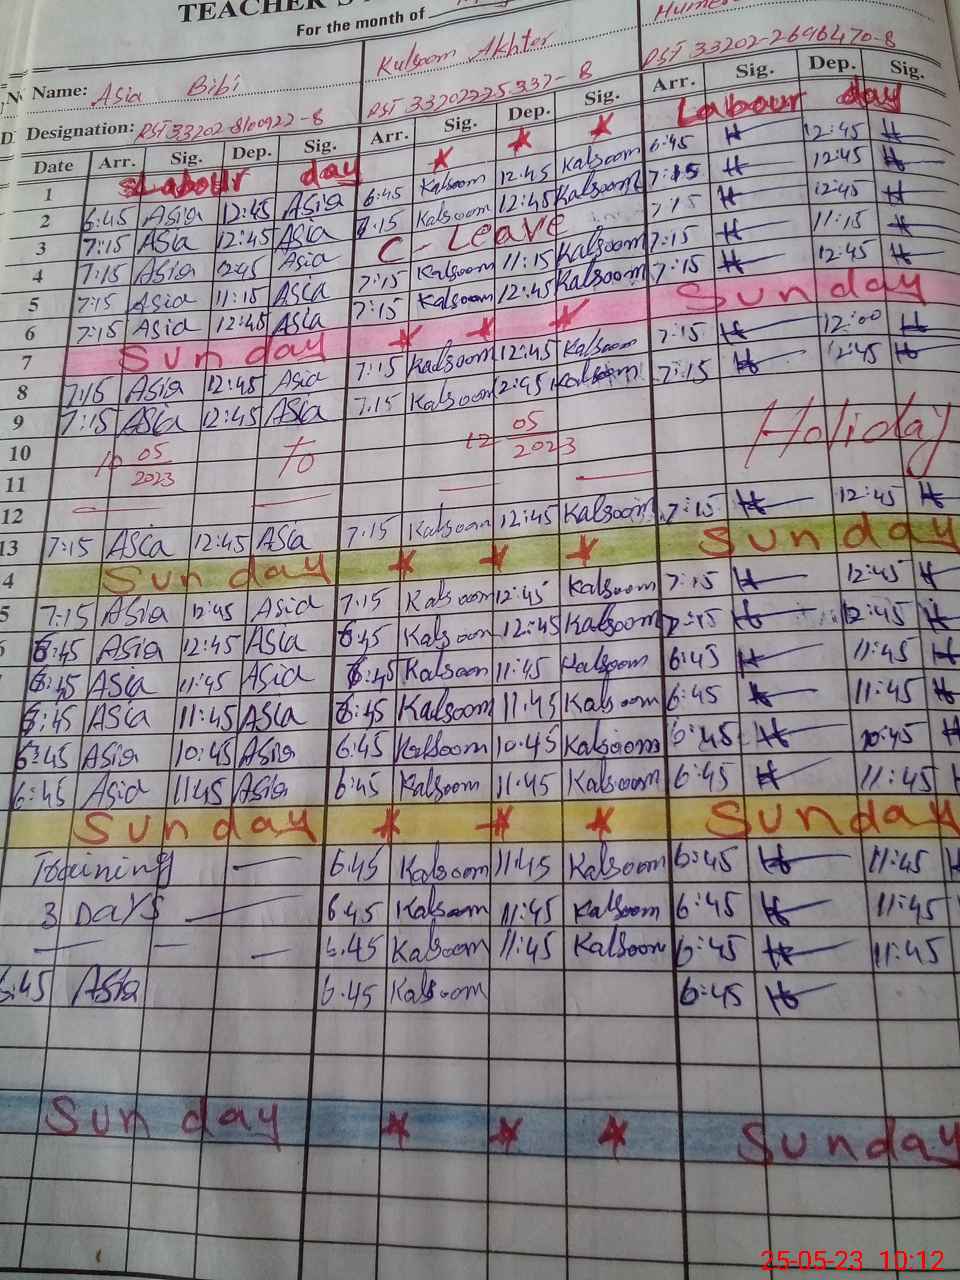 TEACHER'S
For the month of
Name: Asia Bibi Kulsoom Akhter
Designation: PST 33202-8160922-8 PST 33202225337-8 PST 33202-2696470-8
Date Arr. Sig. Dep. Sig. Arr. Sig. Dep. Sig. Arr. Sig. Dep. Sig.
1 Labour day * * * Labour day
2 6:45 Asia 12:45 Asia 6:45 Kalsoom 12:45 Kalsoom 6:45 H 12:45 H
3 7:15 Asia 12:45 Asia 7:15 Kalsoom 12:45 Kalsoom 7:15 H 12:45 H
4 7:15 Asia 12:45 Asia C- Leave 7:15 H 12:45 H
5 7:15 Asia 11:15 Asia 7:15 Kalsoom 11:15 Kalsoom 7:15 H 11:15 H
6 7:15 Asia 12:45 Asia 7:15 Kalsoom 12:45 Kalsoom 7:15 H 12:45 H
7 Sunday * * * Sunday
8 7:15 Asia 12:45 Asia 7:15 Kalsoom 12:45 Kalsoom 7:15 H 12:00 H
9 7:15 Asia 12:45 Asia 7.15 Kalsoom 12:45 Kalsoom 7:15 H 12:45 H
10 10 05 2023 to 12 05 2023 Holiday
11
12
13 7:15 Asia 12:45 Asia 7.15 Kalsoom 12:45 Kalsoom 7:15 H 12:45 H
4 Sunday * * * Sunday
5 7:15 Asia 12:45 Asia 7.15 Kalsoom 12:45 Kalsoom 7:15 H 12:45 H
6:45 Asia 12:45 Asia 6:45 Kalsoom 12:45 Kalsoom 7:15 H 12:45 H
6:45 Asia 11:45 Asia 6:45 Kalsoom 11:45 Kalsoom 6:45 H 11:45 H
6:45 Asia 11:45 Asia 6:45 Kalsoom 11:45 Kalsoom 6:45 H 11:45 H
6:45 Asia 10:45 Asia 6:45 Kalsoom 10:45 Kalsoom 6:45 H 10:45 H
6:45 Asia 11:45 Asia 6:45 Kalsoom 11:45 Kalsoom 6:45 H 11:45 H
Sunday * * * Sunday
Training 6.45 Kalsoom 11:45 Kalsoom 6:45 H 11:45 H
3 Days 6.45 Kalsoom 11:45 Kalsoom 6:45 H 11:45
6.45 Kalsoom 11:45 Kalsoom 6:45 H 11:45
6:45 Asia 6.45 Kalsoom 6:45 H
Sunday * * * Sunday
25-05-23 10:12